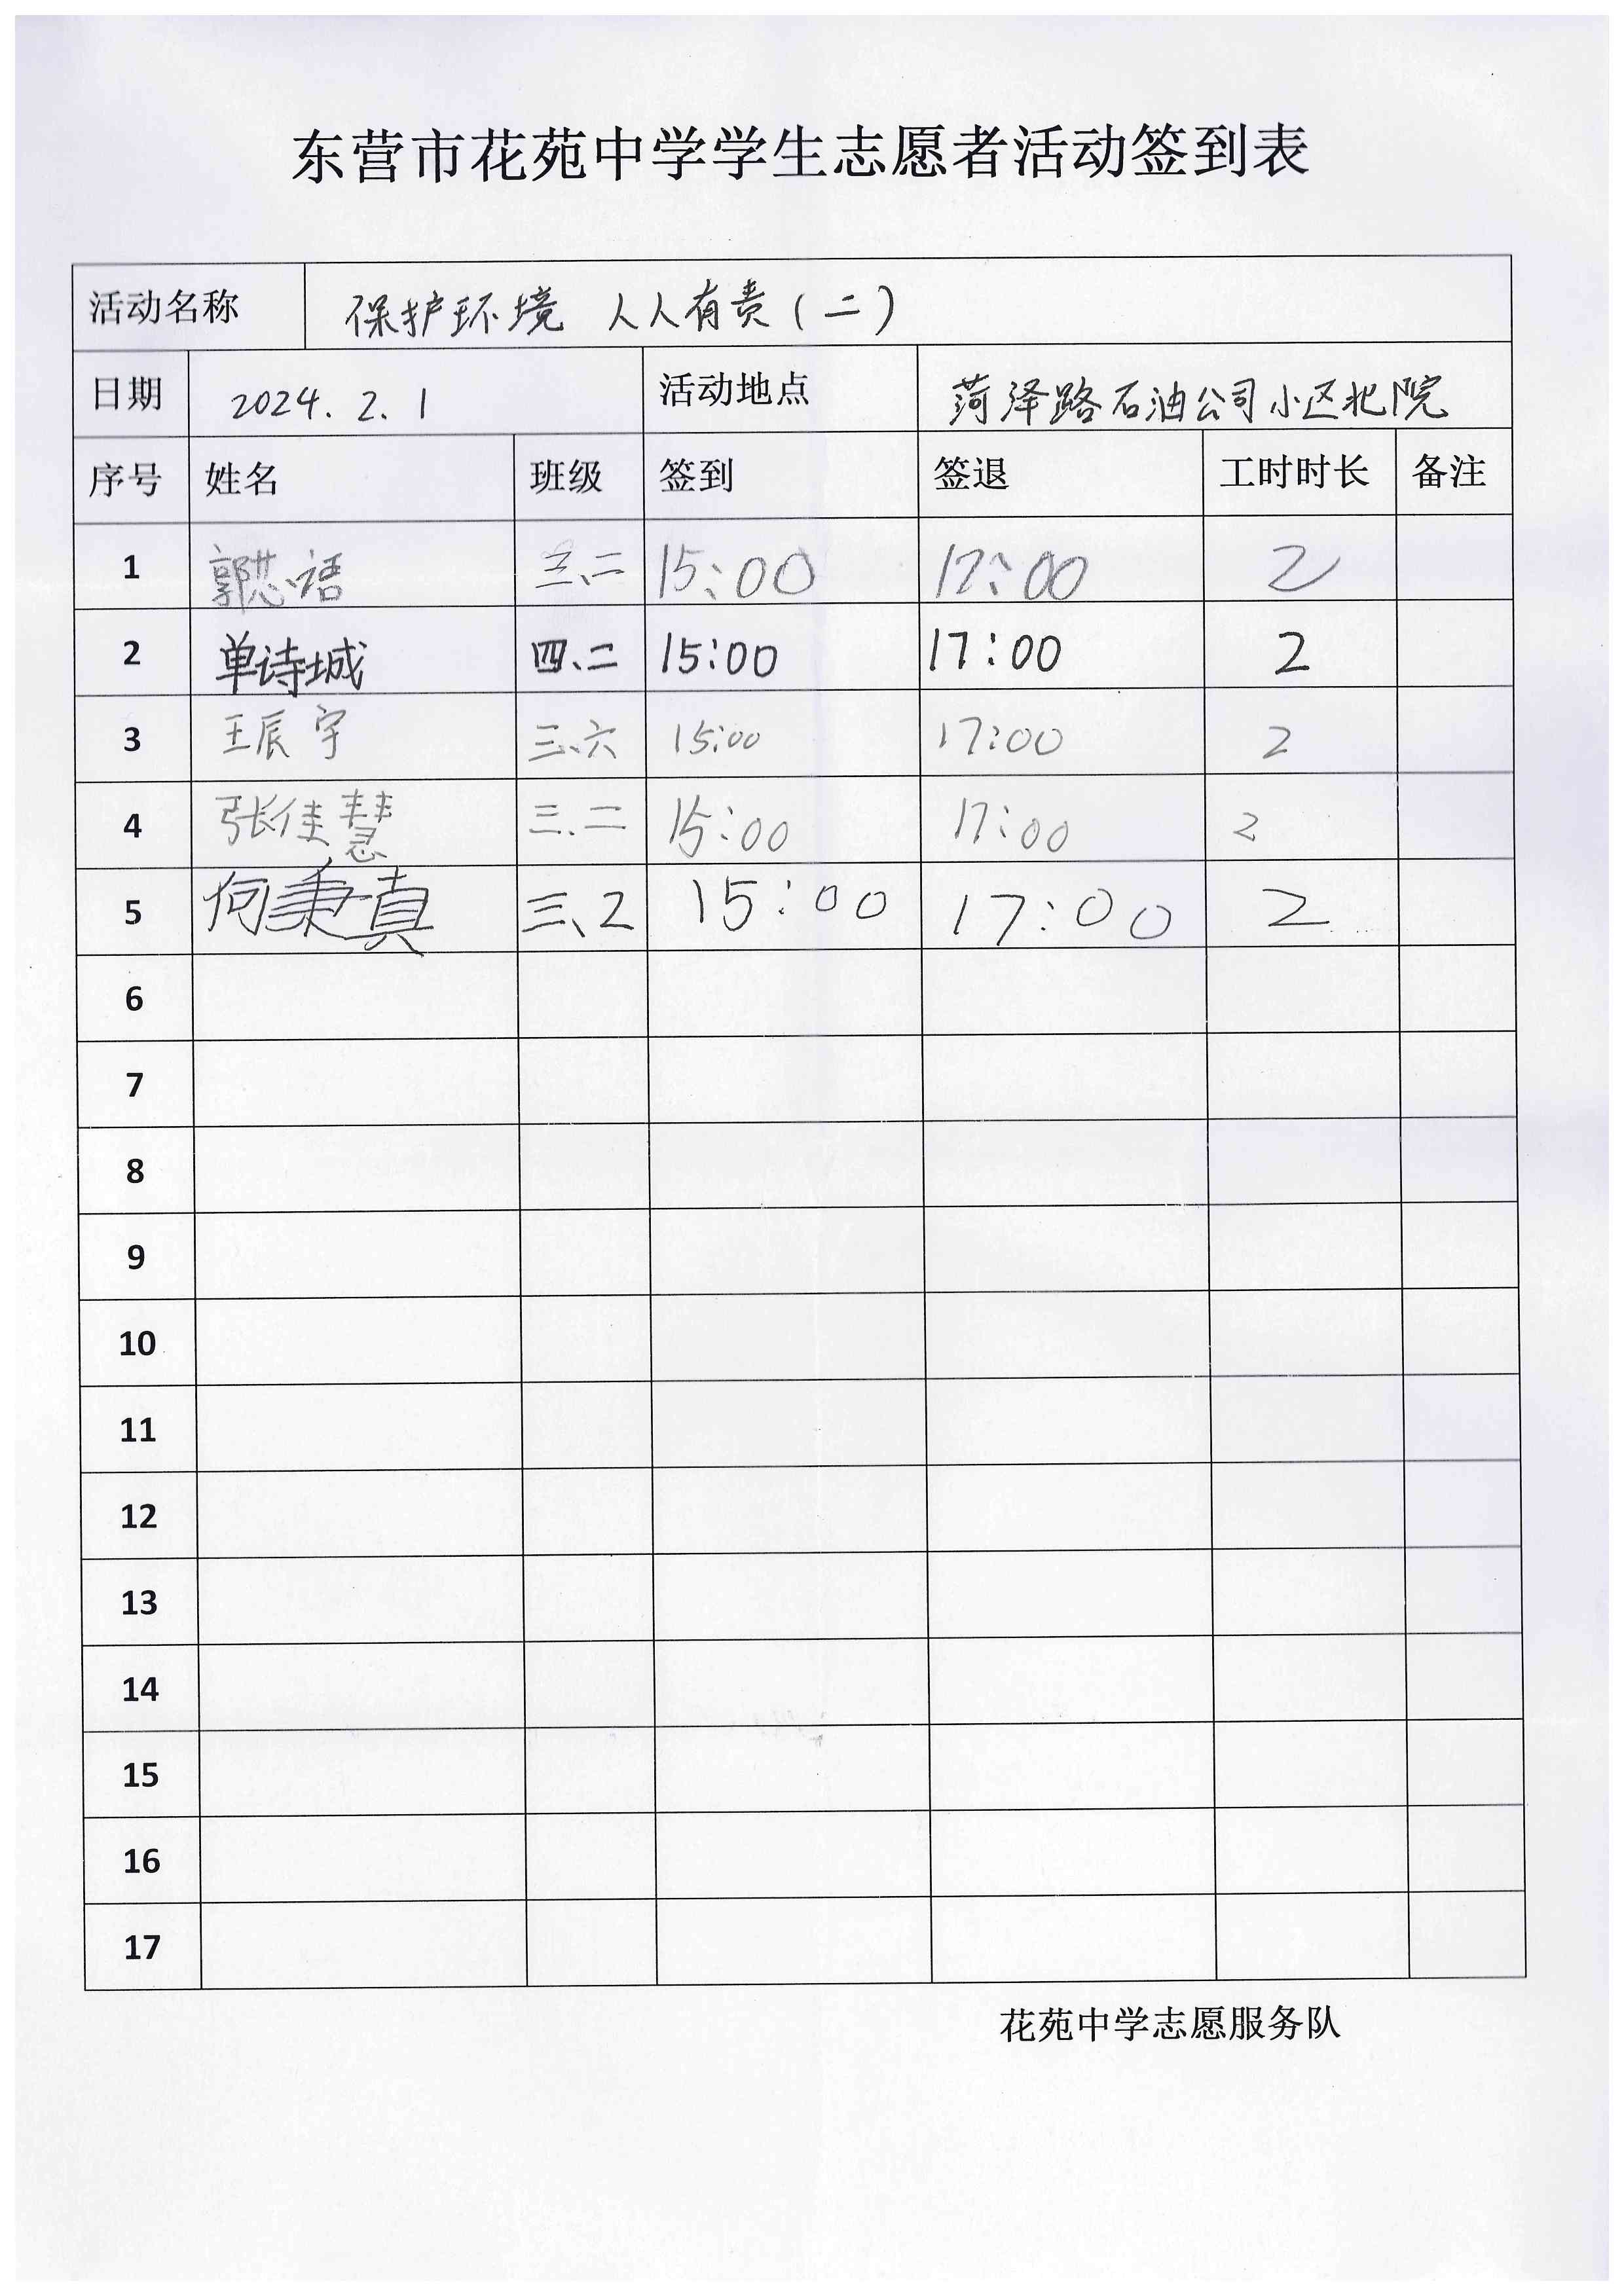 东营市花苑中学学生志愿者活动签到表
活动名称 保护环境 人人有责（二）
日期 2024.2.1 活动地点 菏泽路石油公司小区北院
序号 姓名 班级 签到 签退 工时时长 备注
1 郭芯语 三、二 15:00 17:00 2
2 单诗城 四、二 15:00 17:00 2
3 王辰宇 三、六 15:00 17:00 2
4 张佳慧 三、二 15:00 17:00 2
5 何秉真 三、2 15:00 17:00 2
6
7
8
9
10
11
12
13
14
15
16
17
花苑中学志愿服务队